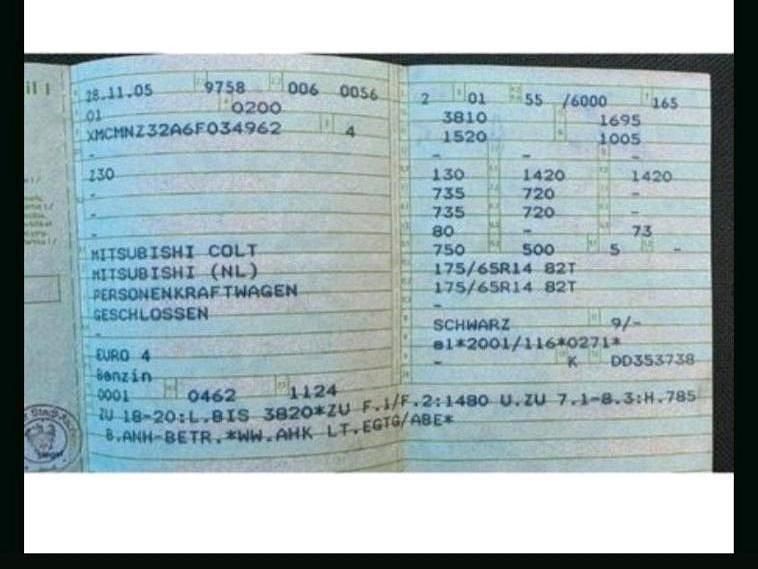 il I
28.11.05 9758 006 0056
01 0200
XMCMNZ32A6F034962 4
-
130
-
-
-
MITSUBISHI COLT
MITSUBISHI (NL)
PERSONENKRAFTWAGEN
GESCHLOSSEN
-
EURO 4
Benzin
0001 0462 1124
ZU 18-20:L.BIS 3820*ZU F.1/F.2:1480 U.ZU 7.1-8.3:H.785
B.ANH-BETR.*WW.AHK LT.EGTG/ABE*
2 01 55 /6000 165
3810 1695
1520 1005
- - -
130 1420 1420
735 720 -
735 720 -
80 - 73
750 500 5 -
175/65R14 82T
175/65R14 82T
-
SCHWARZ 9/-
e1*2001/116*0271*
- K DD353738